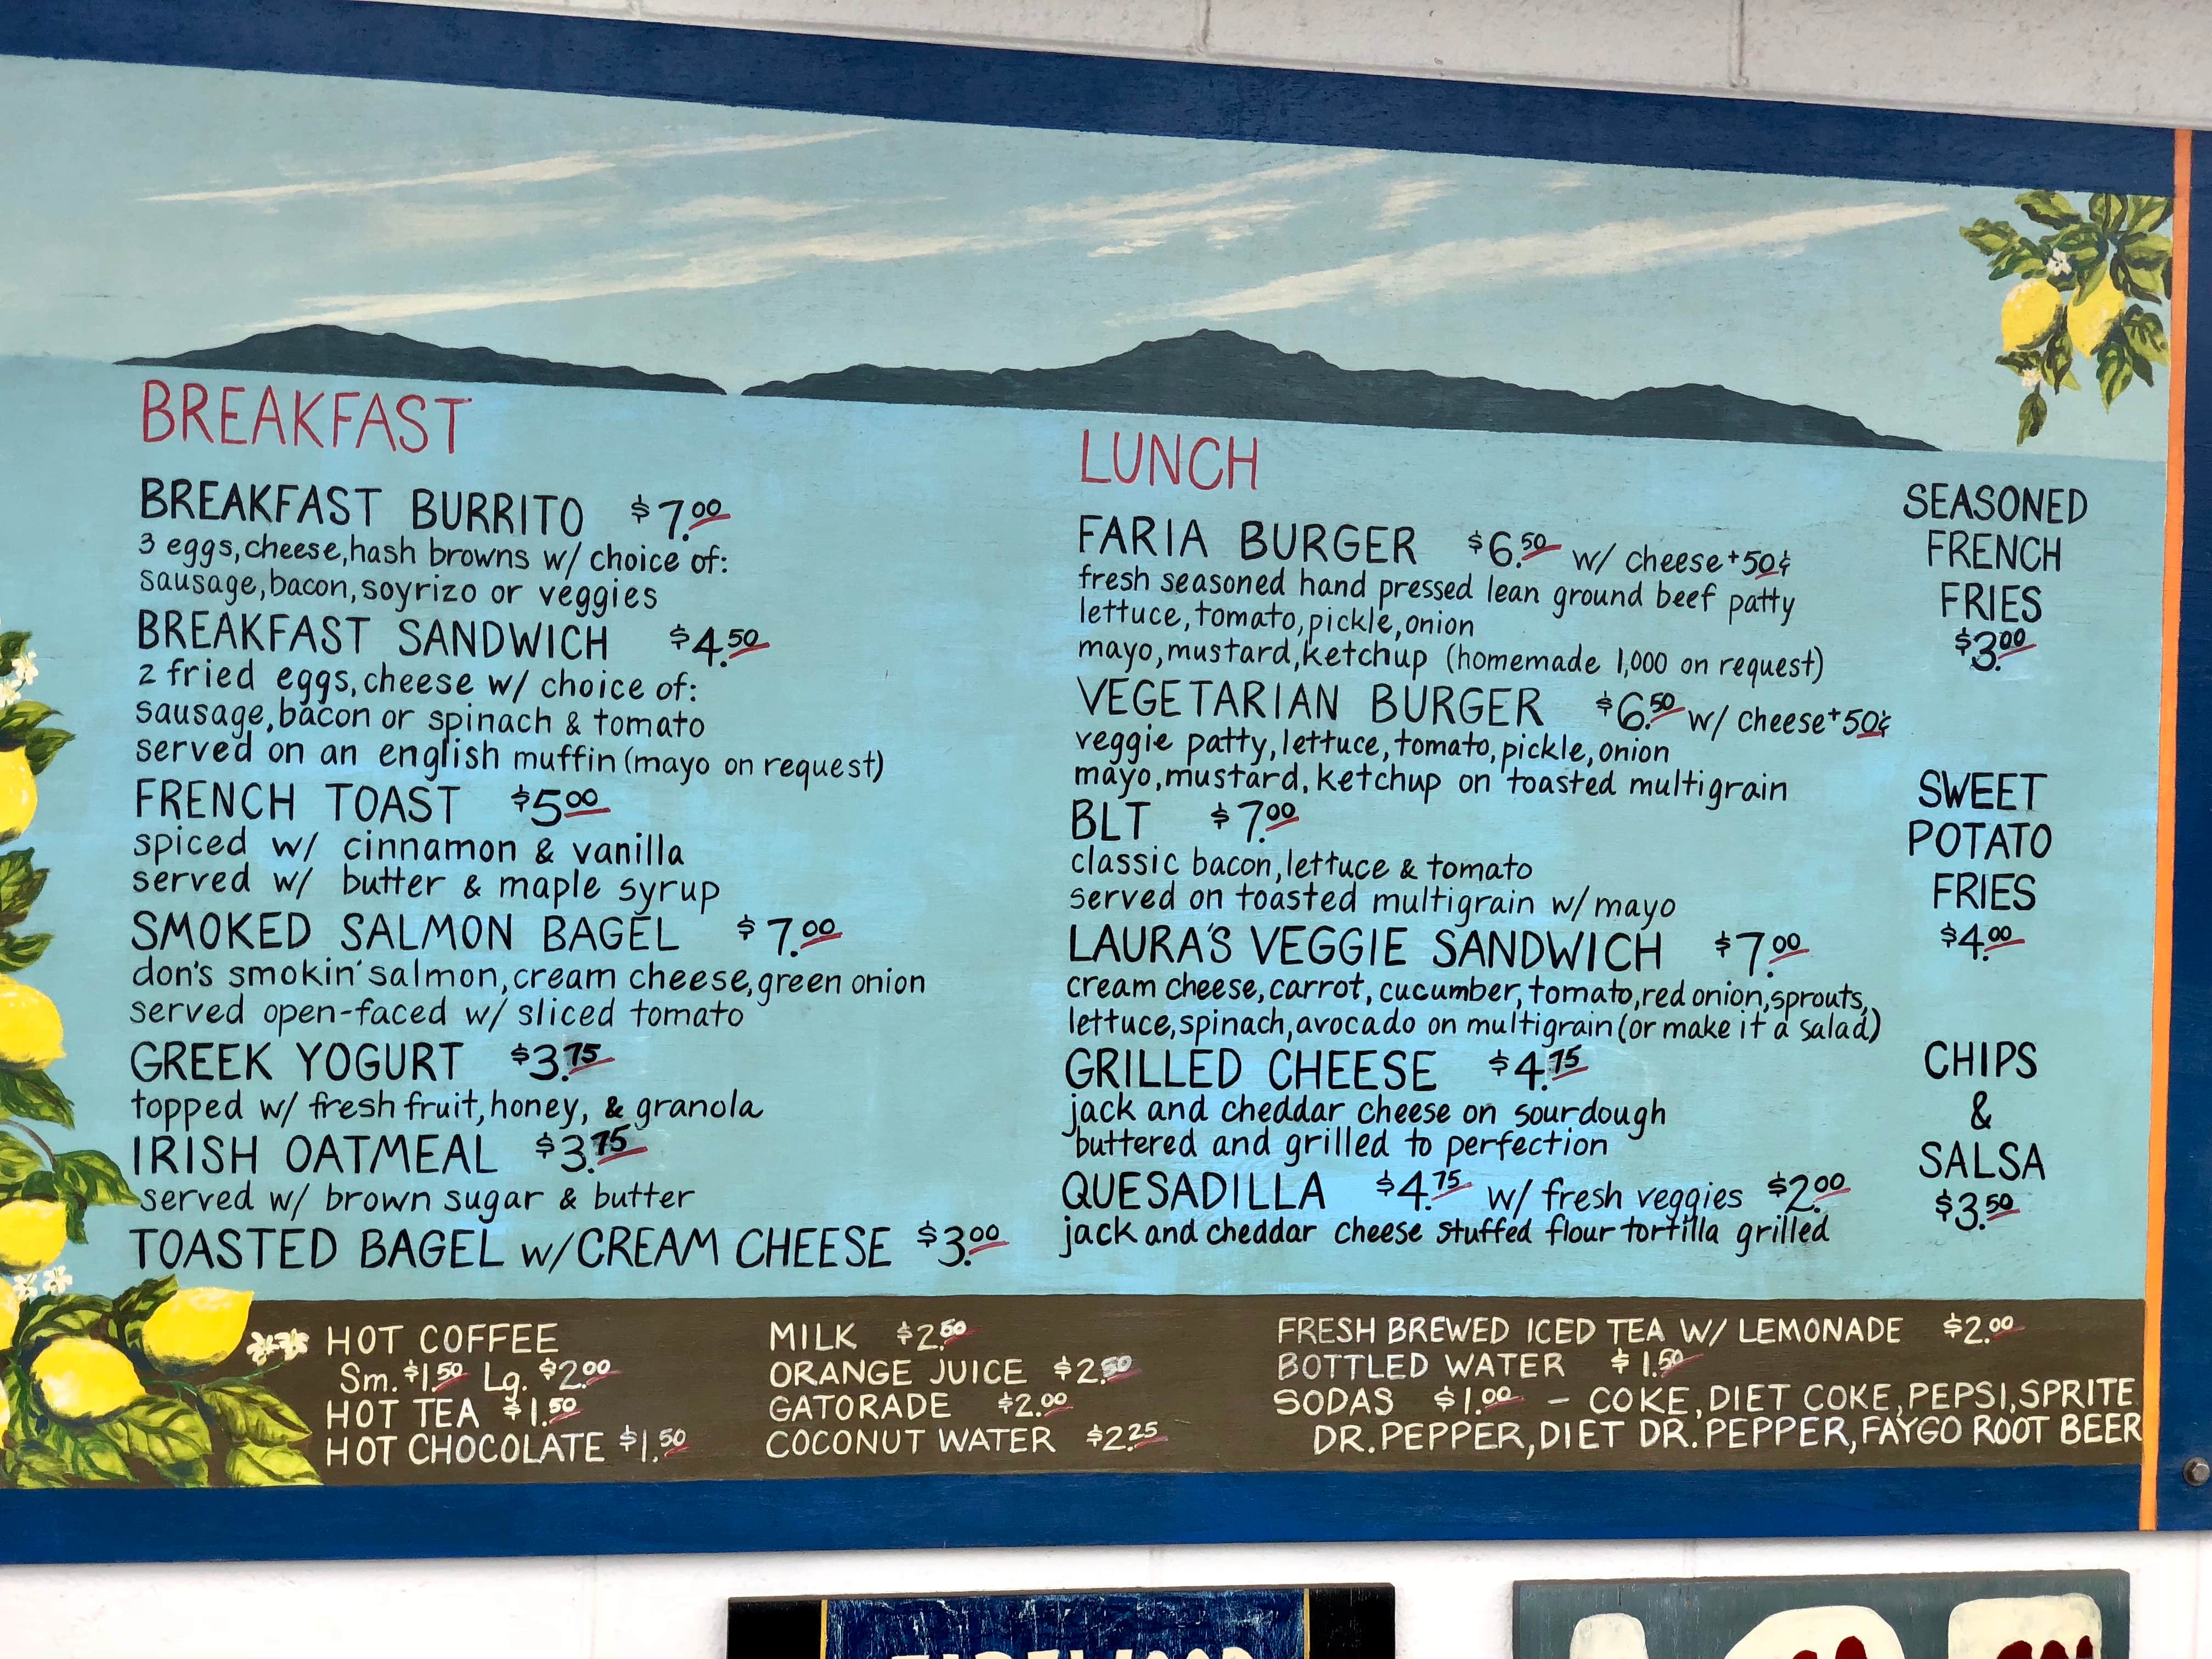 BREAKFAST
BREAKFAST BURRITO $7.00
3 eggs, cheese, hash browns w/ choice of:
sausage, bacon, soyrizo or veggies
BREAKFAST SANDWICH $4.50
2 fried eggs, cheese w/ choice of:
sausage, bacon or spinach & tomato
served on an english muffin (mayo on request)
FRENCH TOAST $5.00
spiced w/ cinnamon & vanilla
served w/ butter & maple syrup
SMOKED SALMON BAGEL $7.00
don's smokin' salmon, cream cheese, green onion
served open-faced w/ sliced tomato
GREEK YOGURT $3.75
topped w/ fresh fruit, honey, & granola
IRISH OATMEAL $3.75
served w/ brown sugar & butter
TOASTED BAGEL w/ CREAM CHEESE $3.00
LUNCH
FARIA BURGER $6.50 w/ cheese +50¢
fresh seasoned hand pressed lean ground beef patty
lettuce, tomato, pickle, onion
mayo, mustard, ketchup (homemade 1,000 on request)
VEGETARIAN BURGER $6.50 w/ cheese +50¢
veggie patty, lettuce, tomato, pickle, onion
mayo, mustard, ketchup on toasted multigrain
BLT $7.00
classic bacon, lettuce & tomato
served on toasted multigrain w/ mayo
LAURA'S VEGGIE SANDWICH $7.00
cream cheese, carrot, cucumber, tomato, red onion, sprouts,
lettuce, spinach, avocado on multigrain (or make it a salad)
GRILLED CHEESE $4.75
jack and cheddar cheese on sourdough
buttered and grilled to perfection
QUESADILLA $4.75 w/ fresh veggies $2.00
jack and cheddar cheese stuffed flour tortilla grilled
SEASONED
FRENCH
FRIES
$3.00
SWEET
POTATO
FRIES
$4.00
CHIPS
&
SALSA
$3.50
HOT COFFEE
Sm. $1.50 Lg. $2.00
HOT TEA $1.50
HOT CHOCOLATE $1.50
MILK $2.50
ORANGE JUICE $2.50
GATORADE $2.00
COCONUT WATER $2.25
FRESH BREWED ICED TEA W/ LEMONADE $2.00
BOTTLED WATER $1.50
SODAS $1.00 - COKE, DIET COKE, PEPSI, SPRITE
DR. PEPPER, DIET DR. PEPPER, FAYGO ROOT BEER